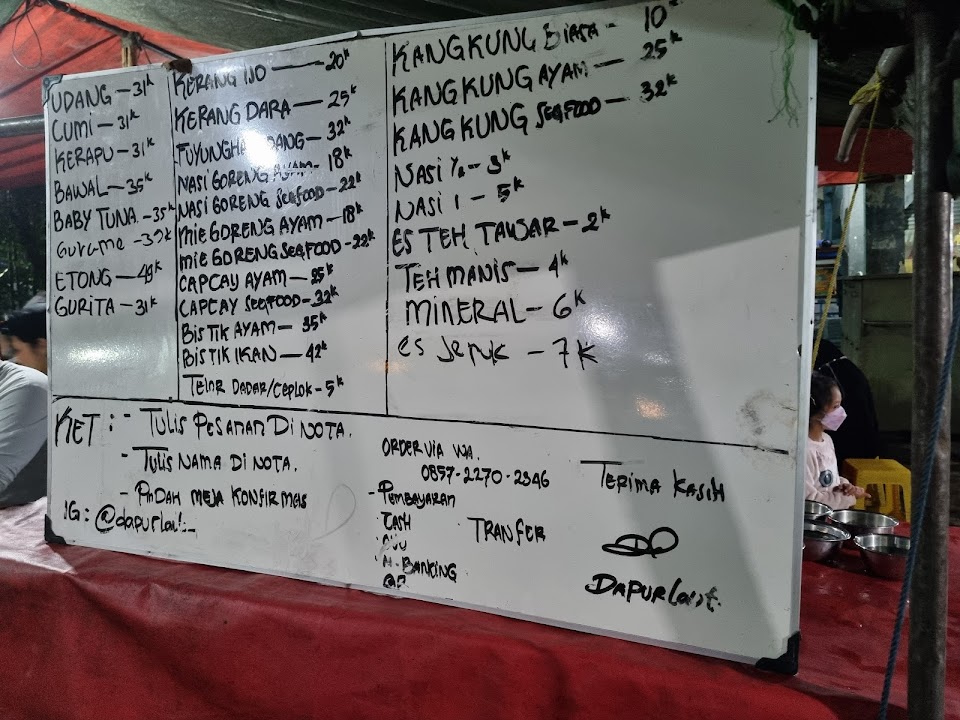 UDANG - 31K
CUMI - 31K
KERAPU - 31K
BAWAL - 35K
BABY TUNA - 35K
GURAME - K
ETONG - K
GURITA - 31K
KERANG IJO - 20K
KERANG DARA - 25K
32K
NASI GORENG AYAM - 18K
NASI GORENG SEAFOOD - 22K
MIE GORENG AYAM - 18K
MIE GORENG SEAFOOD - 22K
CAPCAY AYAM - 25K
CAPCAY SEAFOOD - 32K
BISTIK AYAM - 35K
BISTIK IKAN - 42K
TELOR DADAR/CEPLOK - 5K
KANGKUNG BIASA - 10K
KANGKUNG AYAM - 25K
KANGKUNG SEAFOOD - 32K
NASI ½ - 3K
NASI 1 - 5K
ES TEH TAWAR - 2K
TEH MANIS - 4K
MINERAL - 6K
ES JERUK - 7K
KET : - TULIS PESANAN DI NOTA.
- TULIS NAMA DI NOTA.
- PINDAH MEJA KONFIRMASI
IG : @dapurlaut_
ORDER VIA WA.
0857-2270-2346
- PEMBAYARAN
CASH
TRANFER
M-BANKING
TERIMA KASIH
DAPURLAUT.